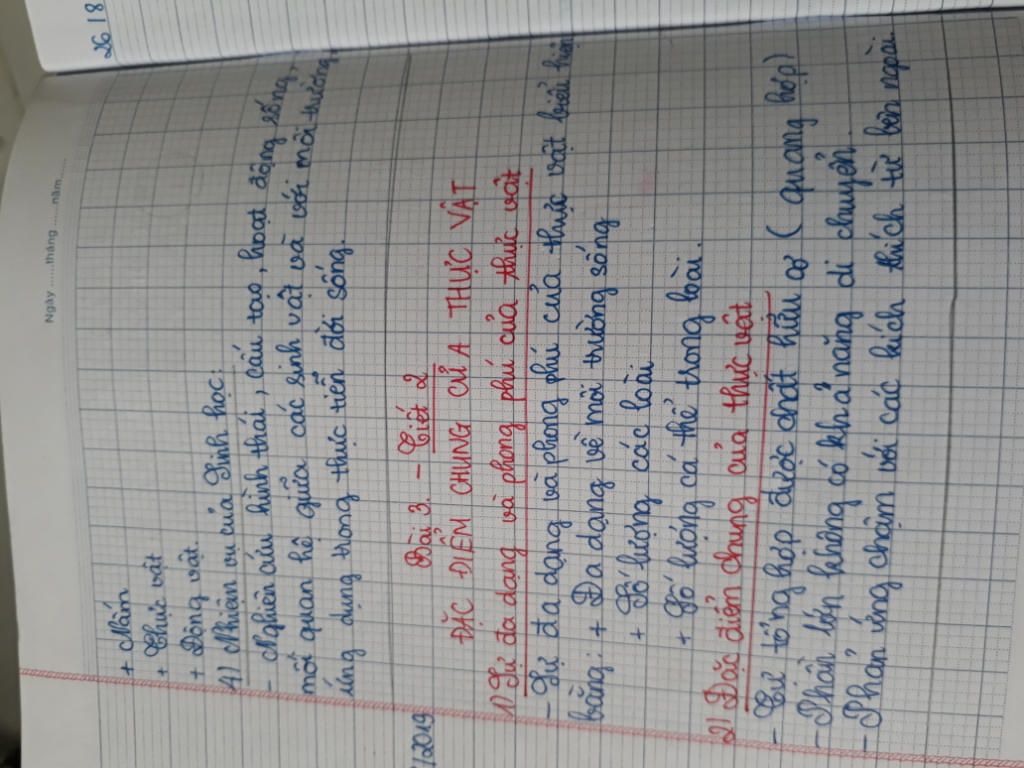 Ngày ......tháng ......năm......
26 18
+ Nấm
+ Thực vật
+ Động vật
4) Nhiệm vụ của Sinh học:
- Nghiên cứu hình thái, cấu tạo, hoạt động sống,
mối quan hệ giữa các sinh vật và với môi trường,
ứng dụng trong thực tiễn đời sống.
/2019
Bài 3. - Tiết 2
ĐẶC ĐIỂM CHUNG CỦA THỰC VẬT
1) Sự đa dạng và phong phú của thực vật
- Sự đa dạng và phong phú của thực vật biểu hiện
bằng: + Đa dạng về môi trường sống
+ Số lượng các loài
+ Số lượng cá thể trong loài.
2) Đặc điểm chung của thực vật
- Tự tổng hợp được chất hữu cơ (quang hợp)
- Phần lớn không có khả năng di chuyển.
- Phản ứng chậm với các kích thích từ bên ngoài.